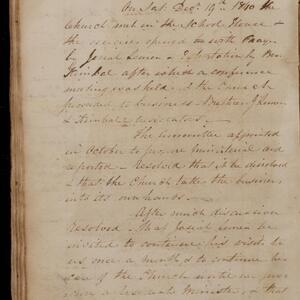 On Sat. Dec. 19th 1840 the
Church met in the School House &
the services opened with Prayer
by Josiah Lemon & Exhortation by Ben
Kimbol after which a conference
meeting was held, & the Church
proceeded to business Brethren J Lemon
& Kimbal
The committee appointed
in October to procure ministerial aid
reported – Resolved that it be dissolved
& that the Church take the business
into its own hands.
After much discussion
Resolved. That Josiah Lemon be
invited to continue his visits to
us once a month & to continue
care of the Church until we
a Minister, & that